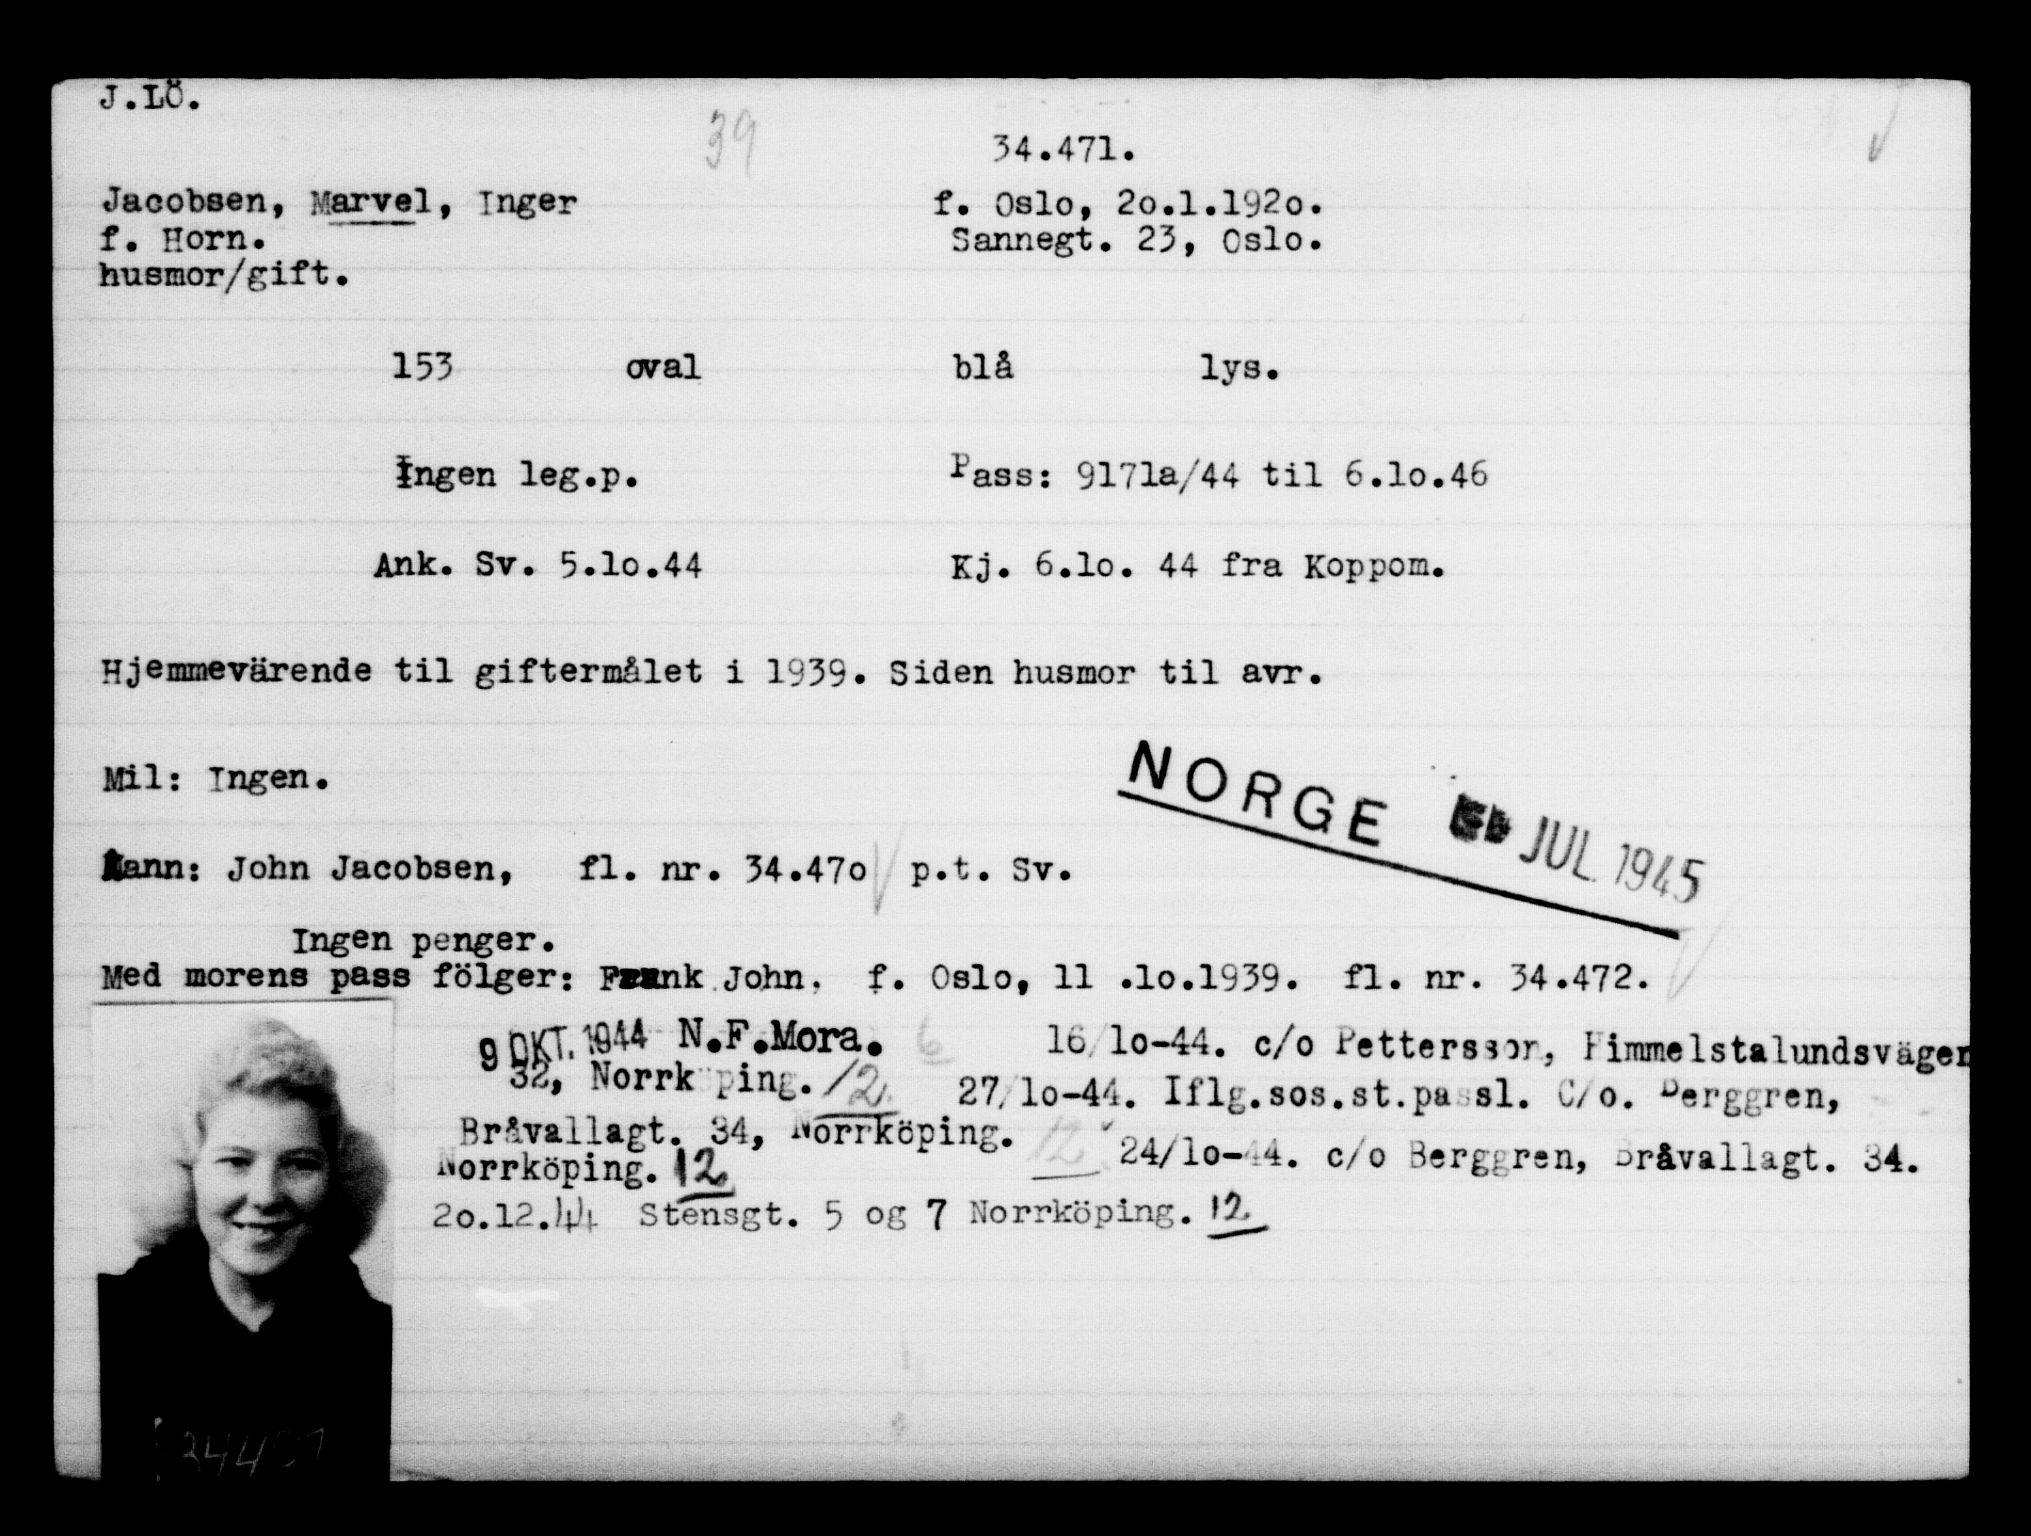 J.LÖ.
39
34.471.
Jacobsen, Marvel, Inger f. Oslo, 2o.1.192o.
f. Horn. Sannegt. 23, Oslo.
husmor/gift.
153 oval blå lys.
Ingen leg.p. Pass: 9171a/44 til 6.1o.46
Ank. Sv. 5.1o.44 Kj. 6.1o. 44 fra Koppom.
Hjemmevärende til giftermålet i 1939. Siden husmor til avr.
Mil: Ingen.
NORGE JUL 1945
Mann: John Jacobsen, fl. nr. 34.47o p.t. Sv.
Ingen penger.
Med morens pass fölger: Frank John, f. Oslo, 11 .1o.1939. fl. nr. 34.472.
9 OKT. 1944 N.F.Mora. 6 16/1o-44. c/o Pettersson, Himmelstalundsvägen
32, Norrköping. 12 27/1o-44. Iflg.sos.st.passl. C/o. Berggren,
Bråvallagt. 34, Norrköping. 12 24/1o-44. c/o Berggren, Bråvallagt. 34.
Norrköping. 12
2o.12.44 Stensgt. 5 og 7 Norrköping. 12